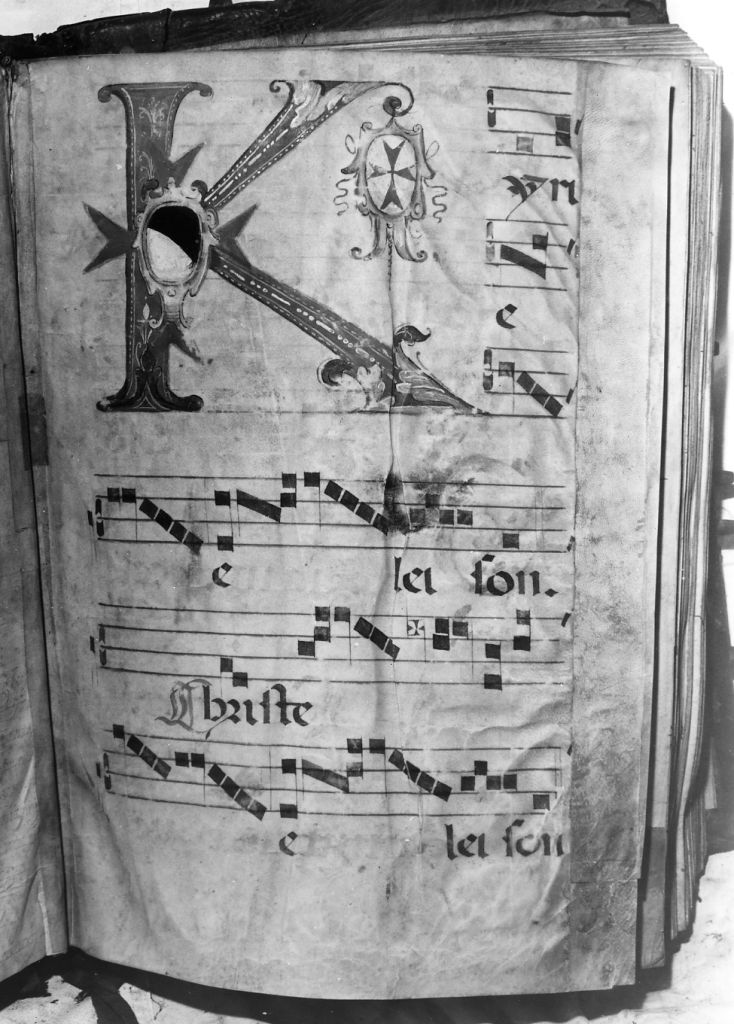 K yri
e
e lei son.
Christe
e lei son